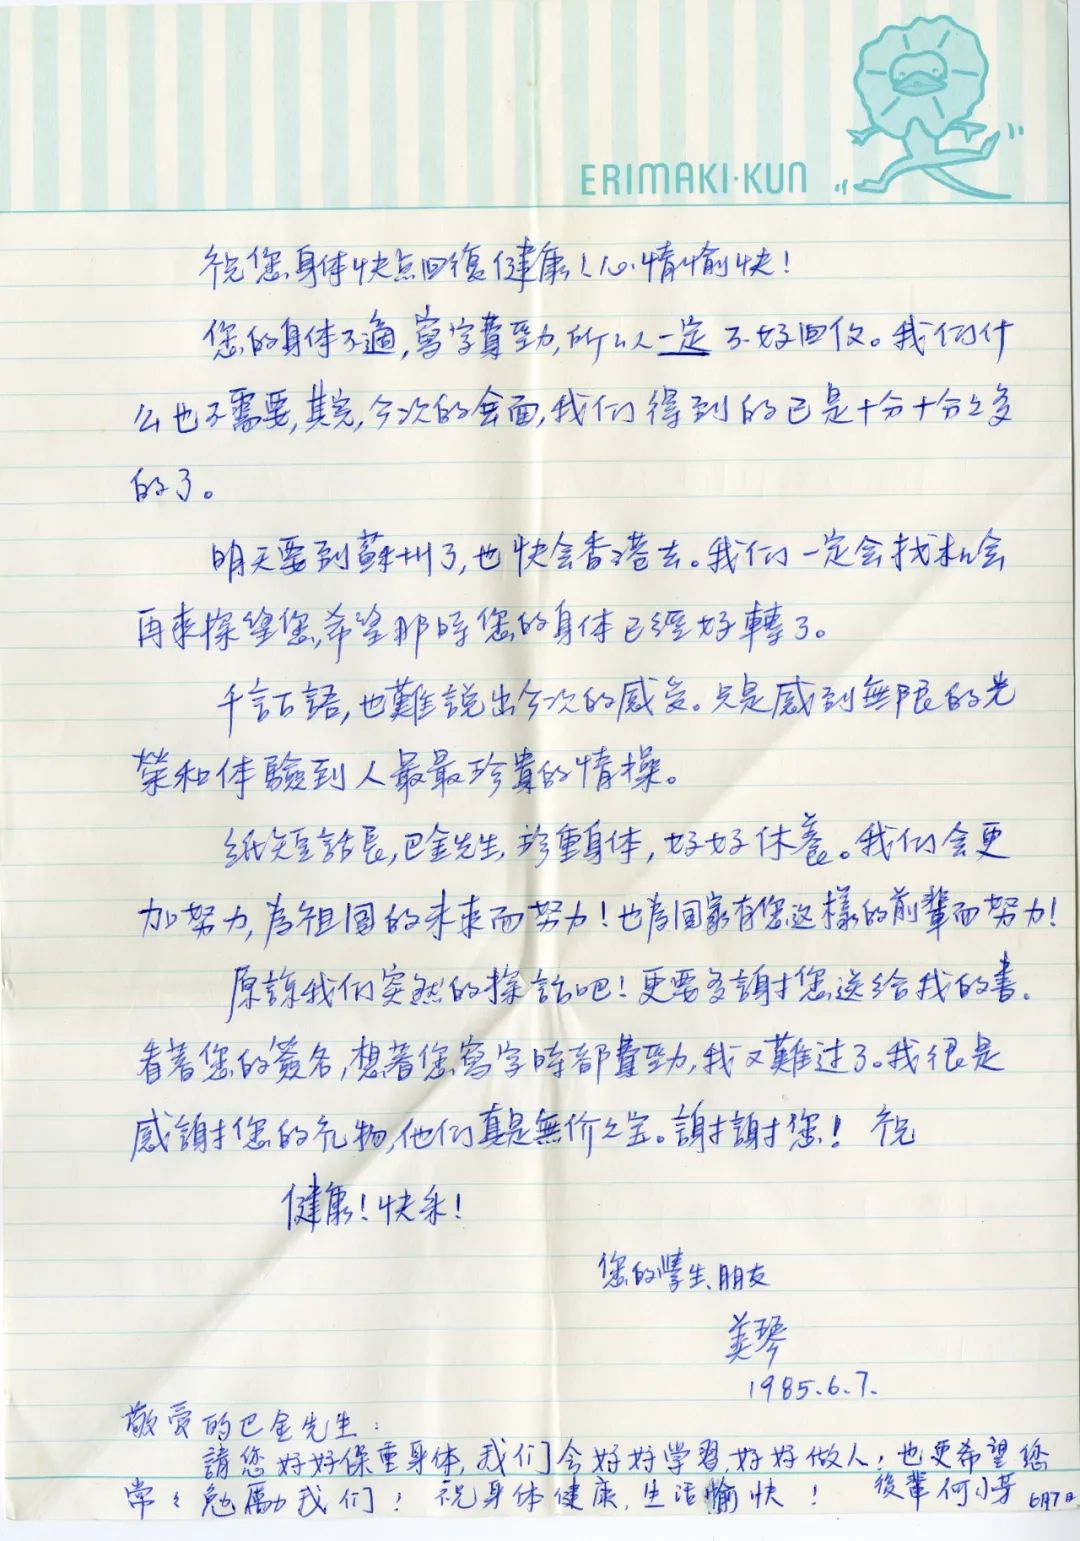 ERIMAKI·KUN
祝您身体快点回復健康!心情愉快!
您的身体不適,寫字費勁,所以一定不好回信。我们什
么也不需要,其实,今次的会面,我们得到的已是十分十分之多
的了。
明天要到蘇州了,也快会香港去。我们一定会找机会
再来探望您,希望那時您的身体已經好轉了。
千言万語,也難說出今次的感受。只是感到無限的光
榮和体驗到人最最珍貴的情操。
紙短話長,巴金先生,珍重身体,好好休養。我们会更
加努力,為祖国的未来而努力!也為国家有您这樣的前輩而努力!
原諒我们突然的探訪吧!更要多謝您送给我的書。
看著您的簽名,想著您寫字時都費勁,我又難过了。我很是
感謝您的礼物,他们真是無价之宝。謝謝您!祝
健康!快乐!
您的學生、朋友
美琴
1985.6.7.
敬愛的巴金先生:
請您好好保重身体,我们会好好学習,好好做人,也更希望您
常々勉勵我们!祝身体健康,生活愉快!後輩何小芳 6月7日